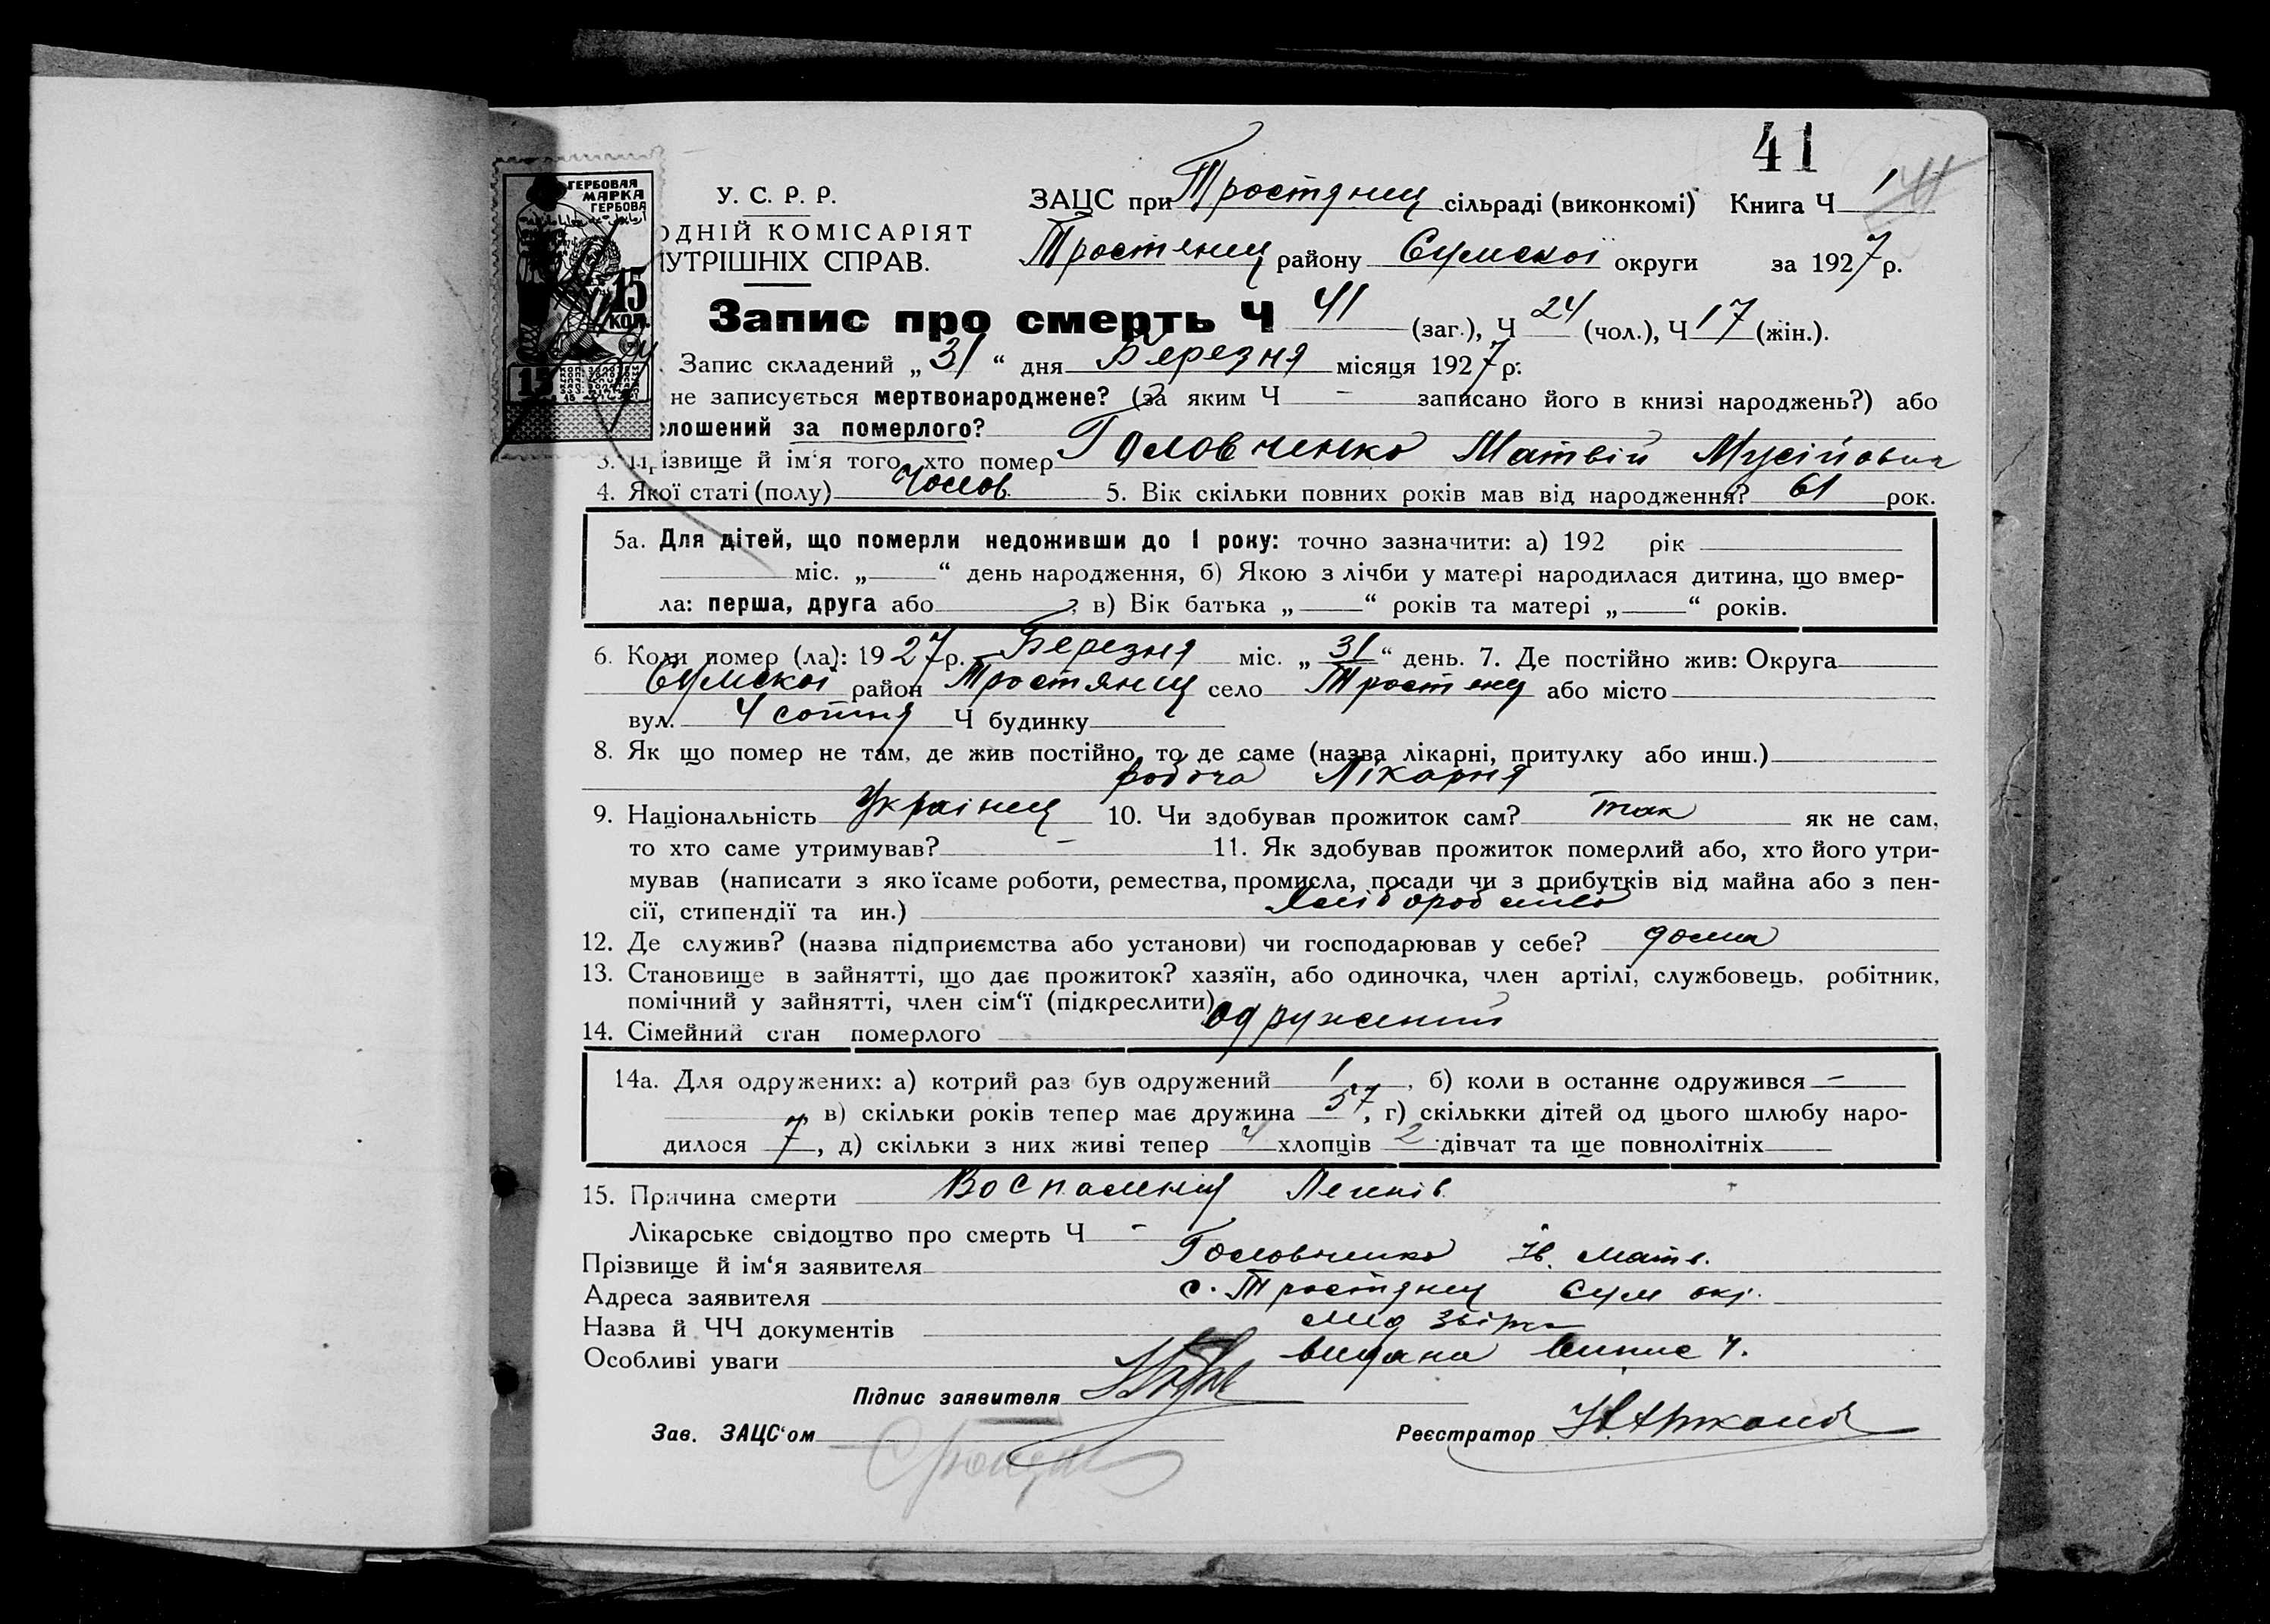 41
ГЕРБОВАЯ
МАРКА
ГЕРБОВА
15
КОП.
15
У. С. Р. Р. ЗАЦС при Тростянец сільраді (виконкомі) Книга Ч 1
ОДНІЙ КОМІСАРІЯТ
УТРІШНІХ СПРАВ.
Тростянец району Сумскої округи за 1927 р.
Запис про смерть Ч 41 (заг.), Ч 24 (чол.), Ч 17 (жін.).
Запис складений „31“ дня Березня місяця 1927 р.
не записується мертвонароджене? (за яким Ч - записано його в книзі народжень?) або
лошений за померлого?
3. Прізвище й ім‘я того, хто помер Головченко Матвій Мусійович
4. Якої статі (полу) Чолов. 5. Вік скільки повних років мав від народження? 61 рок.
5а. Для дітей, що померли недоживши до 1 року: точно зазначити: а) 192 рік
міс. „ “ день народження, б) Якою з лічби у матері народилася дитина, що вмер-
ла: перша, друга або , в) Вік батька „ “ років та матері „ “ років.
6. Коли помер (ла): 1927 р. Березня міс. „31“ день. 7. Де постійно жив: Округа
Сумскої район Тростянец село Тростянец або місто
вул. 4 сотня Ч будинку
8. Як що помер не там, де жив постійно, то де саме (назва лікарні, притулку або инш.)
робоча Лікарня
9. Національність Українец 10. Чи здобував прожиток сам? так як не сам,
то хто саме утримував? - 11. Як здобував прожиток померлий або, хто його утри-
мував (написати з якої саме роботи, ремества, промисла, посади чи з прибутків від майна або з пен-
сії, стипендії та ин.) Хліборобство
12. Де служив? (назва підприємства або установи) чи господарював у себе? дома
13. Становище в зайнятті, що дає прожиток? хазяїн, або одиночка, член артілі, службовець, робітник,
помічний у зайнятті, член сім‘ї (підкреслити)
14. Сімейний стан померлого одружений
14а. Для одружених: а) котрий раз був одружений 1, б) коли в останнє одружився -
, в) скільки років тепер має дружина 57, г) скількки дітей од цього шлюбу наро-
дилося 7, д) скільки з них живі тепер 4 хлопців 2 дівчат та ще повнолітніх
15. Причина смерти Воспаления Легенів.
Лікарське свідоцтво про смерть Ч -
Прізвище й ім‘я заявителя Головченко Ів. Матв.
Адреса заявителя с. Тростянец Сум окр.
Назва й ЧЧ документів
Особливі уваги видана Випис Ч.
Підпис заявителя
Зав. ЗАЦС‘ом Реєстратор